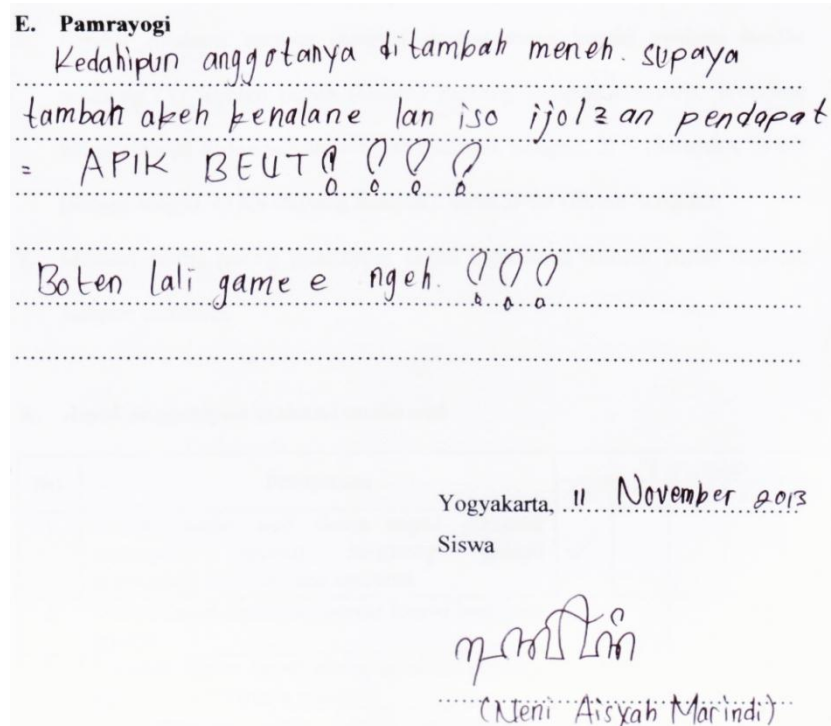 E. Pamrayogi
Kedahipun anggotanya ditambah meneh. supaya
tambah akeh kenalane lan iso ijol2an pendapat
= APIK BEUT!!!!
Boten lali game e ngeh. !!!
Yogyakarta, 11 November 2013
Siswa
(Neni Aisyah Marindi)